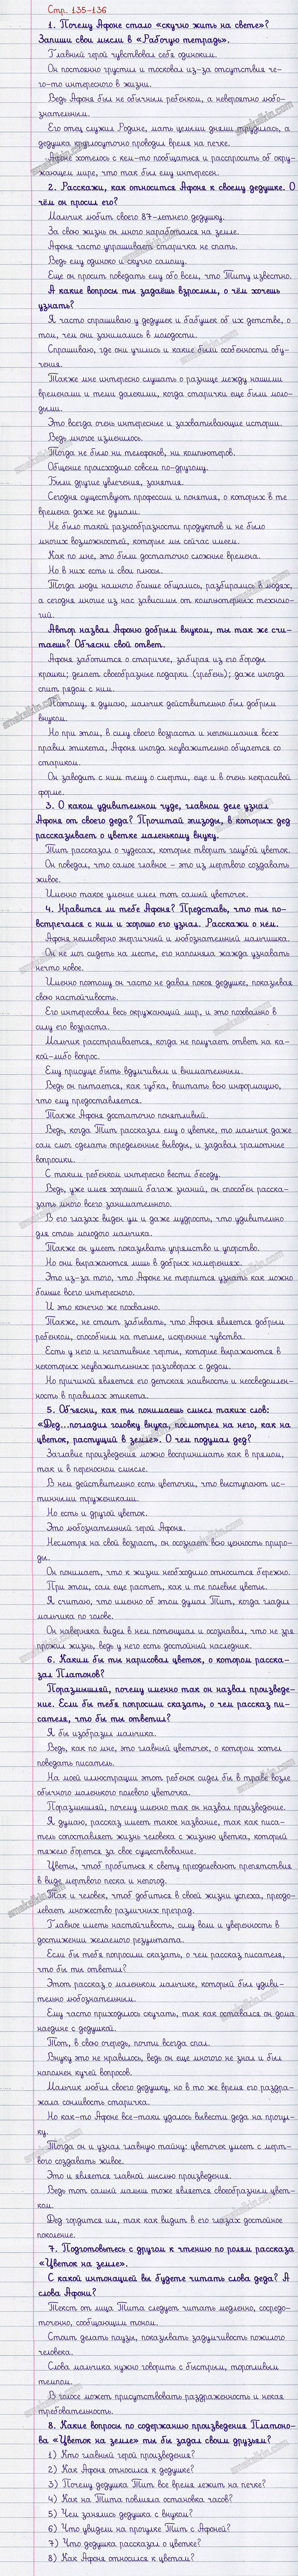 Стр. 135-136
1. Почему Афоне стало «скучно жить на свете»?
Запиши свои мысли в «Рабочую тетрадь».
Главный герой чувствовал себя одиноким.
Он постоянно грустил и тосковал из-за отсутствия че-
го-то интересного в жизни.
Ведь Афоня был не обычным ребенком, а невероятно любо-
знательным.
Его отец служил Родине, мать целыми днями трудилась, а
дедушка круглосуточно проводил время на печке.
Афоне хотелось с кем-то пообщаться и расспросить об окру-
жающем мире, что так был ему интересен.
2. Расскажи, как относится Афоня к своему дедушке. О
чём он просил его?
Мальчик любит своего 87-летнего дедушку.
За свою жизнь он много наработался на земле.
Афоня часто упрашивает старичка не спать.
Ведь ему одиноко и скучно самому.
Еще он просит поведать ему обо всем, что Титу известно.
А какие вопросы ты задаёшь взрослым, о чём хочешь
узнать?
Я часто спрашиваю у дедушек и бабушек об их детстве, о
том, чем они занимались в молодости.
Спрашиваю, где они учились и какие были особенности обу-
чения.
Также мне интересно слушать о разнице между нашими
временами и теми далекими, когда старички еще были моло-
дыми.
Это всегда очень интересные и захватывающие истории.
Ведь многое изменилось.
Тогда не было ни телефонов, ни компьютеров.
Общение происходило совсем по-другому.
Были другие увлечения, занятия.
Сегодня существуют профессии и понятия, о которых в те
времена даже не думали.
Не было такой разнообразности продуктов и не было
многих возможностей, которые мы сейчас имеем.
Как по мне, это были достаточно сложные времена.
Но в них есть и свои плюсы.
Тогда люди намного больше общались, разбирались в людях,
а сегодня многие из нас зависимы от компьютерных техноло-
гий.
Автор назвал Афоню добрым внуком, ты так же счи-
таешь? Объясни свой ответ.
Афоня заботится о старичке, забирая из его бороды
крошки; делает своеобразные подарки (гребень); даже иногда
спит рядом с ним.
Поэтому, я думаю, мальчик действительно был добрым
внуком.
Но при этом, в силу своего возраста и непонимания всех
правил этикета, Афоня иногда неуважительно общается со
стариком.
Он заводит с ним тему о смерти, еще и в очень некрасивой
форме.
3. О каком удивительном чуде, главном деле узнал
Афоня от своего деда? Прочитай эпизоды, в которых дед
рассказывает о цветке маленькому внуку.
Тит рассказал о чудесах, которые творит голубой цветок.
Он поведал, что самое главное – это из мертвого создавать
живое.
Именно такое умение имел тот самый цветочек.
4. Нравится ли тебе Афоня? Представь, что ты по-
встречался с ним и хорошо его узнал. Расскажи о нём.
Афоня неимоверно энергичный и любознательный мальчишка.
Он не мог сидеть на месте, его наполняла жажда узнавать
нечто новое.
Именно поэтому он часто не давал покоя дедушке, показывая
свою настойчивость.
Его интересовал весь окружающий мир, и это похвально в
силу его возраста.
Мальчик расстраивается, когда не получает ответ на ка-
кой-либо вопрос.
Ему присуще быть вдумчивым и внимательным.
Ведь он пытается, как губка, впитать всю информацию,
что ему предоставляется.
Также Афоня достаточно понятливый.
Ведь, когда Тит рассказал ему о цветке, то мальчик даже
сам смог сделать определенные выводы, и задавал грамотные
вопросики.
С таким ребенком интересно вести беседу.
Ведь, уже имея хороший багаж знаний, он способен расска-
зать много всего занимательного.
В его глазах виден ум и даже мудрость, что удивительно
для столь молодого мальчика.
Также он умеет показывать упрямство и упорство.
Но они выражаются лишь в добрых намерениях.
Это из-за того, что Афоне не терпится узнать как можно
больше всего интересного.
И это конечно же похвально.
Также, не стоит забывать, что Афоня является добрым
ребенком, способным на теплые, искренние чувства.
Есть у него и негативные черты, которые выражаются в
некоторых неуважительных разговорах с дедом.
Но причиной является его детская наивность и неосведомлен-
ность в правилах этикета.
5. Объясни, как ты понимаешь смысл таких слов:
«Дед...погладил головку внука, посмотрел на него, как на
цветок, растущий в земле». О чем подумал дед?
Заглавие произведения можно воспринимать как в прямом,
так и в переносном смысле.
В нем действительно есть цветочки, что выступают ис-
тинными тружениками.
Но есть и другой цветок.
Это любознательный герой Афоня.
Несмотря на свой возраст, он осознает всю ценность приро-
ды.
Он понимает, что к жизни необходимо относится бережно.
При этом, сам еще растет, как и те полевые цветы.
Я считаю, что именно об этом думал Тит, когда гладил
мальчика по голове.
Он наверняка видел в нем потенциал и осознавал, что не зря
прожил жизнь, ведь у него есть достойный наследник.
6. Каким бы ты нарисовал цветок, о котором расска-
зал Платонов?
Поразмышляй, почему именно так он назвал произведе-
ние. Если бы тебя попросили сказать, о чем рассказ пи-
сателя, что бы ты ответил?
Я бы изобразил мальчика.
Ведь, как по мне, это главный цветочек, о котором хотел
поведать писатель.
На моей иллюстрации этот ребенок сидел бы в траве возле
обычного маленького полевого цветочка.
Поразмышляй, почему именно так он назвал произведение.
Я думаю, рассказ имеет такое название, так как писа-
тель сопоставляет жизнь человека с жизнью цветка, который
тяжело борется за свое существование.
Цветы, чтоб пробиться к свету преодолевают препятствия
в виде мертвого песка и непогод.
Так и человек, чтоб добиться в своей жизни успеха, преодо-
левает множество различных преград.
Главное иметь настойчивость, силу воли и уверенность в
достижении желаемого результата.
Если бы тебя попросили сказать, о чем рассказ писателя,
что бы ты ответил?
Этот рассказ о маленьком мальчике, который был удиви-
тельно любознательным.
Ему часто приходилось скучать, так как оставался он дома
наедине с дедушкой.
Тот, в свою очередь, почти всегда спал.
Внуку это не нравилось, ведь он еще многого не знал и был
наполнен кучей вопросов.
Мальчик любил своего дедушку, но в то же время его раздра-
жала сонливость старичка.
Но как-то Афоне все-таки удалось вывести деда на прогул-
ку.
Тогда он и узнал главную тайну: цветочек умеет с мерт-
вого создавать живое.
Это и является главной мыслю произведения.
Ведь тот самый малыш тоже является своеобразным цвет-
ком.
Дед гордится им, так как видит в его глазах достойное
поколение.
7. Подготовьтесь с другом к чтению по ролям рассказа
«Цветок на земле».
С какой интонацией вы будете читать слова деда? А
слова Афони?
Текст от лица Тита следует читать медленно, сосредо-
точенно, сообщающим тоном.
Стоит делать паузы, показывать задумчивость пожилого
человека.
Слова мальчика нужно говорить с быстрым, торопливым
темпом.
В голосе может присутствовать раздраженность и некая
требовательность.
8. Какие вопросы по содержанию произведения Платоно-
ва «Цветок на земле» ты бы задал своим друзьям?
1) Кто главный герой произведения?
2) Как Афоня относился к дедушке?
3) Почему дедушка Тит все время лежит на печке?
4) Как на Тита повлияла остановка часов?
5) Чем занялись дедушка с внуком?
6) Что увидели на прогулке Тит с Афоней?
7) Что дедушка рассказал о цветке?
8) Как Афоня относился к цветам?